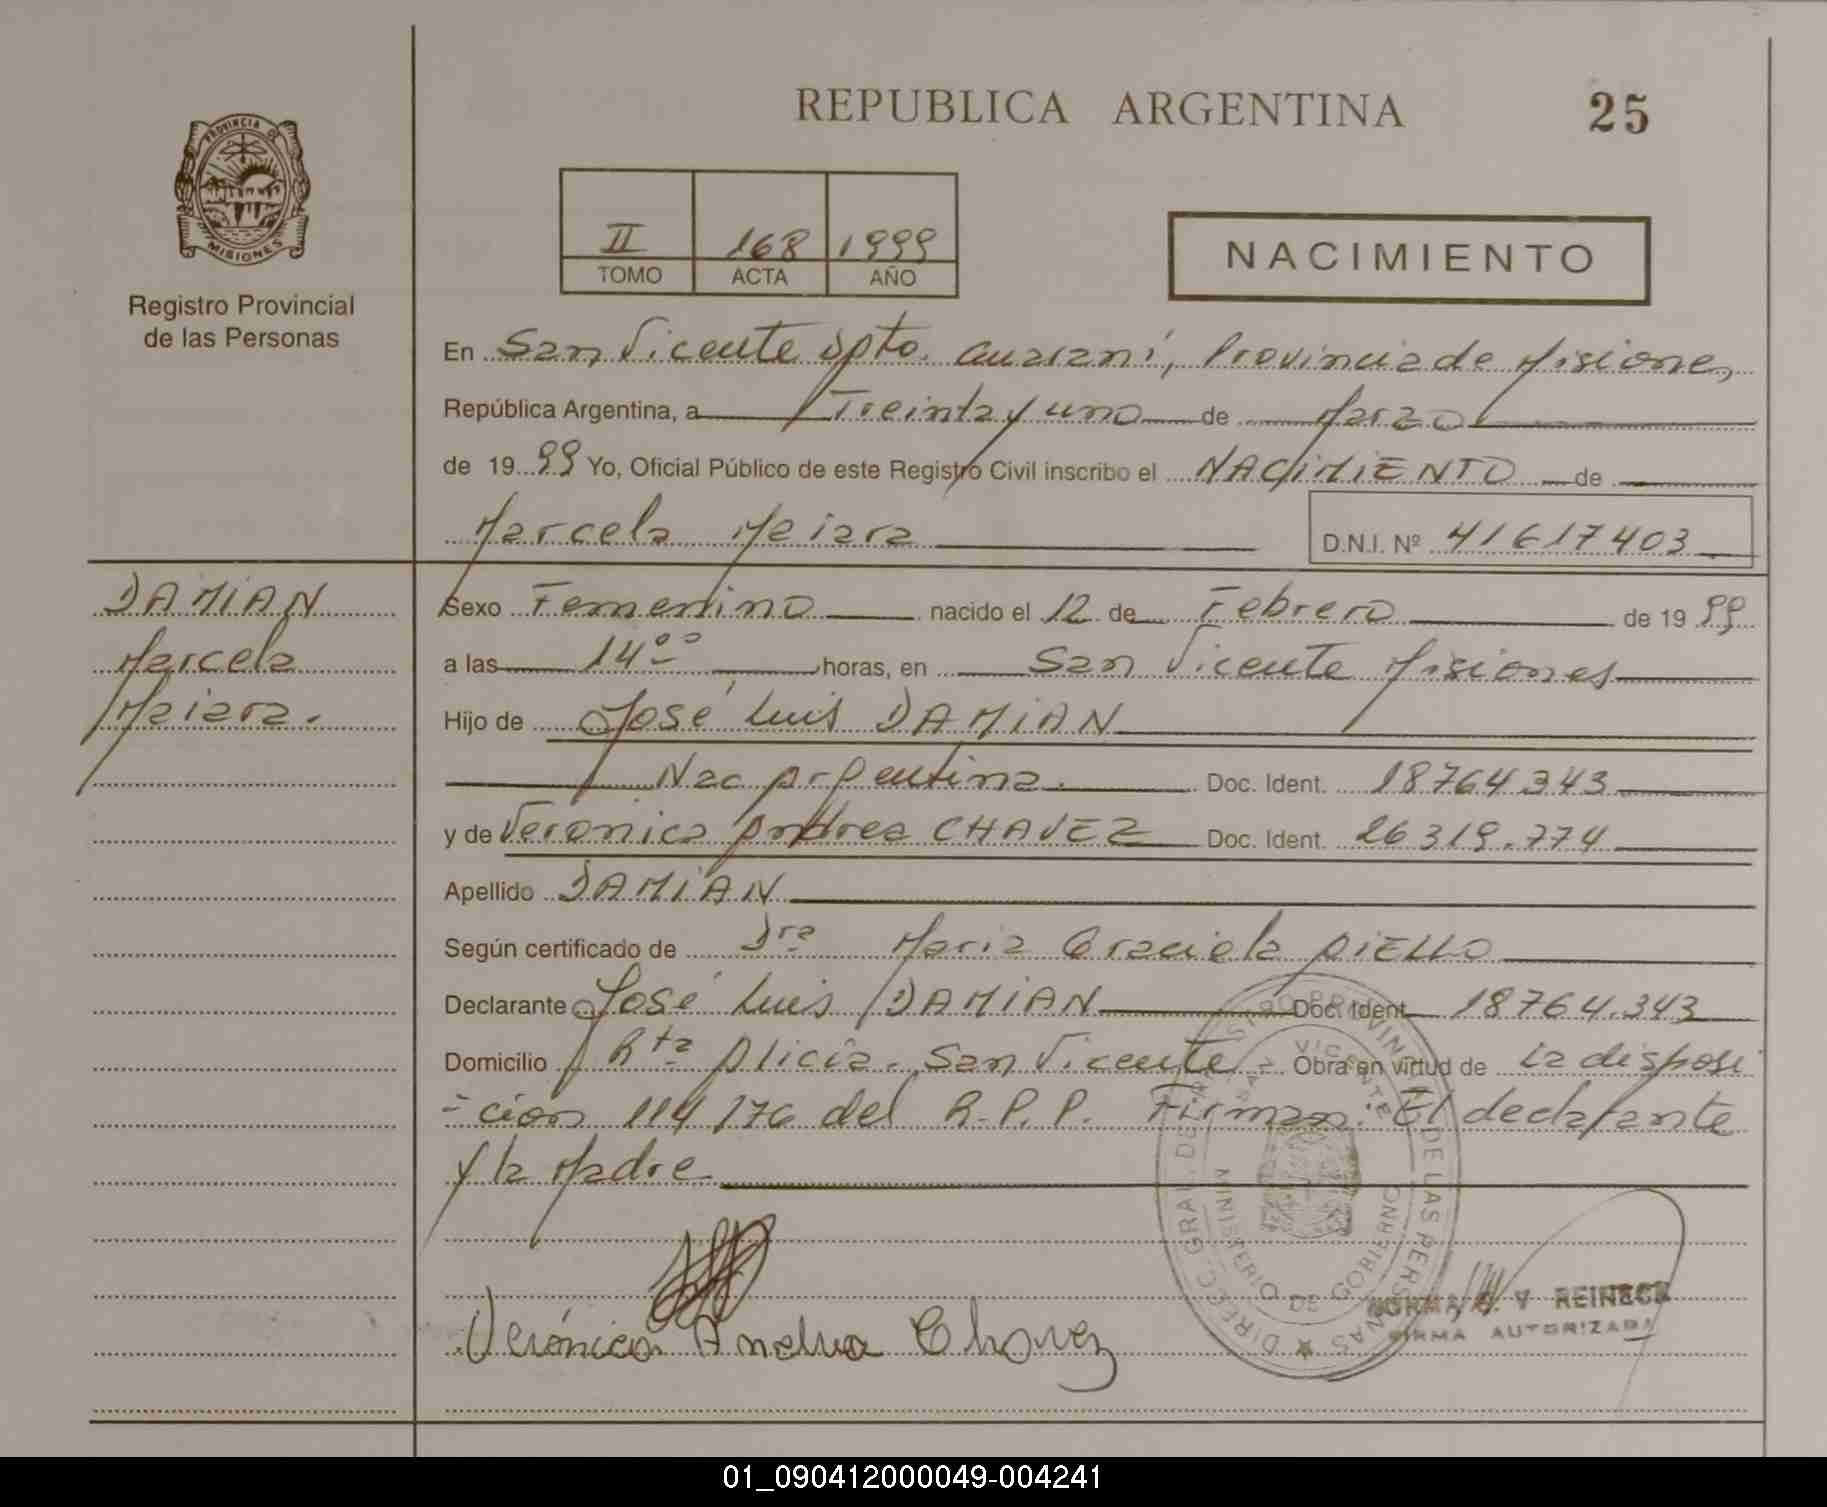 REPUBLICA ARGENTINA
25
PROVINCIA DE
MISIONES
Registro Provincial
de las Personas
II 168 1999
TOMO ACTA AÑO
NACIMIENTO
En San Vicente Dpto. Guaraní, Provincia de Misiones,
República Argentina, a Treinta y uno de Marzo
de 1999 Yo, Oficial Público de este Registro Civil inscribo el NACIMIENTO de
Marcela Maiara
D.N.I. Nº 41617403
DAMIAN
Marcela
Maiara.
Sexo Femenino nacido el 12 de Febrero de 1999
a las 14°° horas, en San Vicente Misiones
Hijo de José Luis DAMIAN
Nac Argentina. Doc. Ident. 18764343
y de Veronica Andrea CHAVEZ Doc. Ident. 26319.774
Apellido DAMIAN
Según certificado de Dra Maria Graciela
Declarante José Luis DAMIAN Doc. Ident. 18764.343
Domicilio Rta Alicia. San Vicente Obra en virtud de la disposi
=cion 114/76 del R.P.P. Firman: El declarante
y la Madre
Verónica Andrea Chavez
DIREC. GRAL. DEL REGISTRO PROVINCIAL DE LAS PERSONAS
SAN VICENTE
MINISTERIO DE GOBIERNO
NORMA REINECK
FIRMA AUTORIZADA
01_090412000049-004241